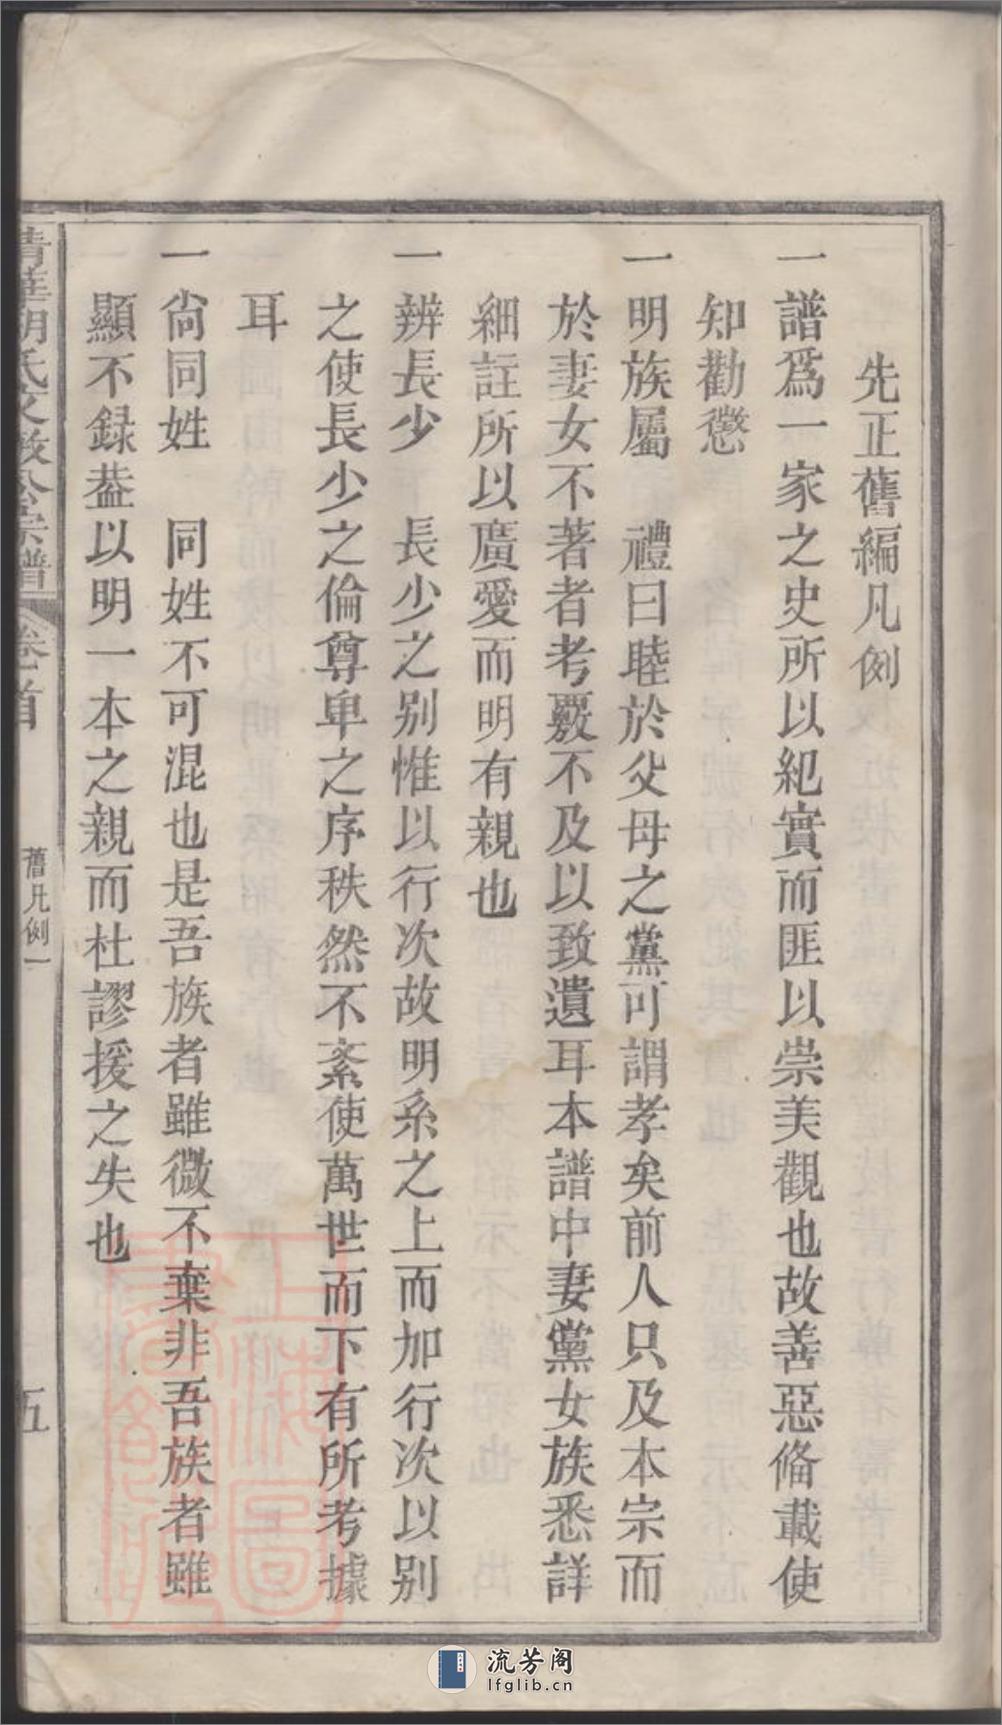 先正舊編凡例
一譜爲一家之史所以紀實而匪以崇美觀也故善惡俻載使
知勸懲
一明族屬　禮曰睦於父母之黨可謂孝矣前人只及本宗而
於妻女不著者考覈不及以致遺耳本譜中妻黨女族悉詳
細註所以廣愛而明有親也
一辨長少　長少之别惟以行次故明系之上而加行次以别
之使長少之倫尊卑之序秩然不紊使萬世而下有所考據
耳
一尙同姓　同姓不可混也是吾族者雖微不棄非吾族者雖
顯不録葢以明一本之親而杜謬援之失也
清華胡氏文敏公宗譜
卷首
舊凡例一
五
上海圖書館藏
流芳阁
lfglib.cn